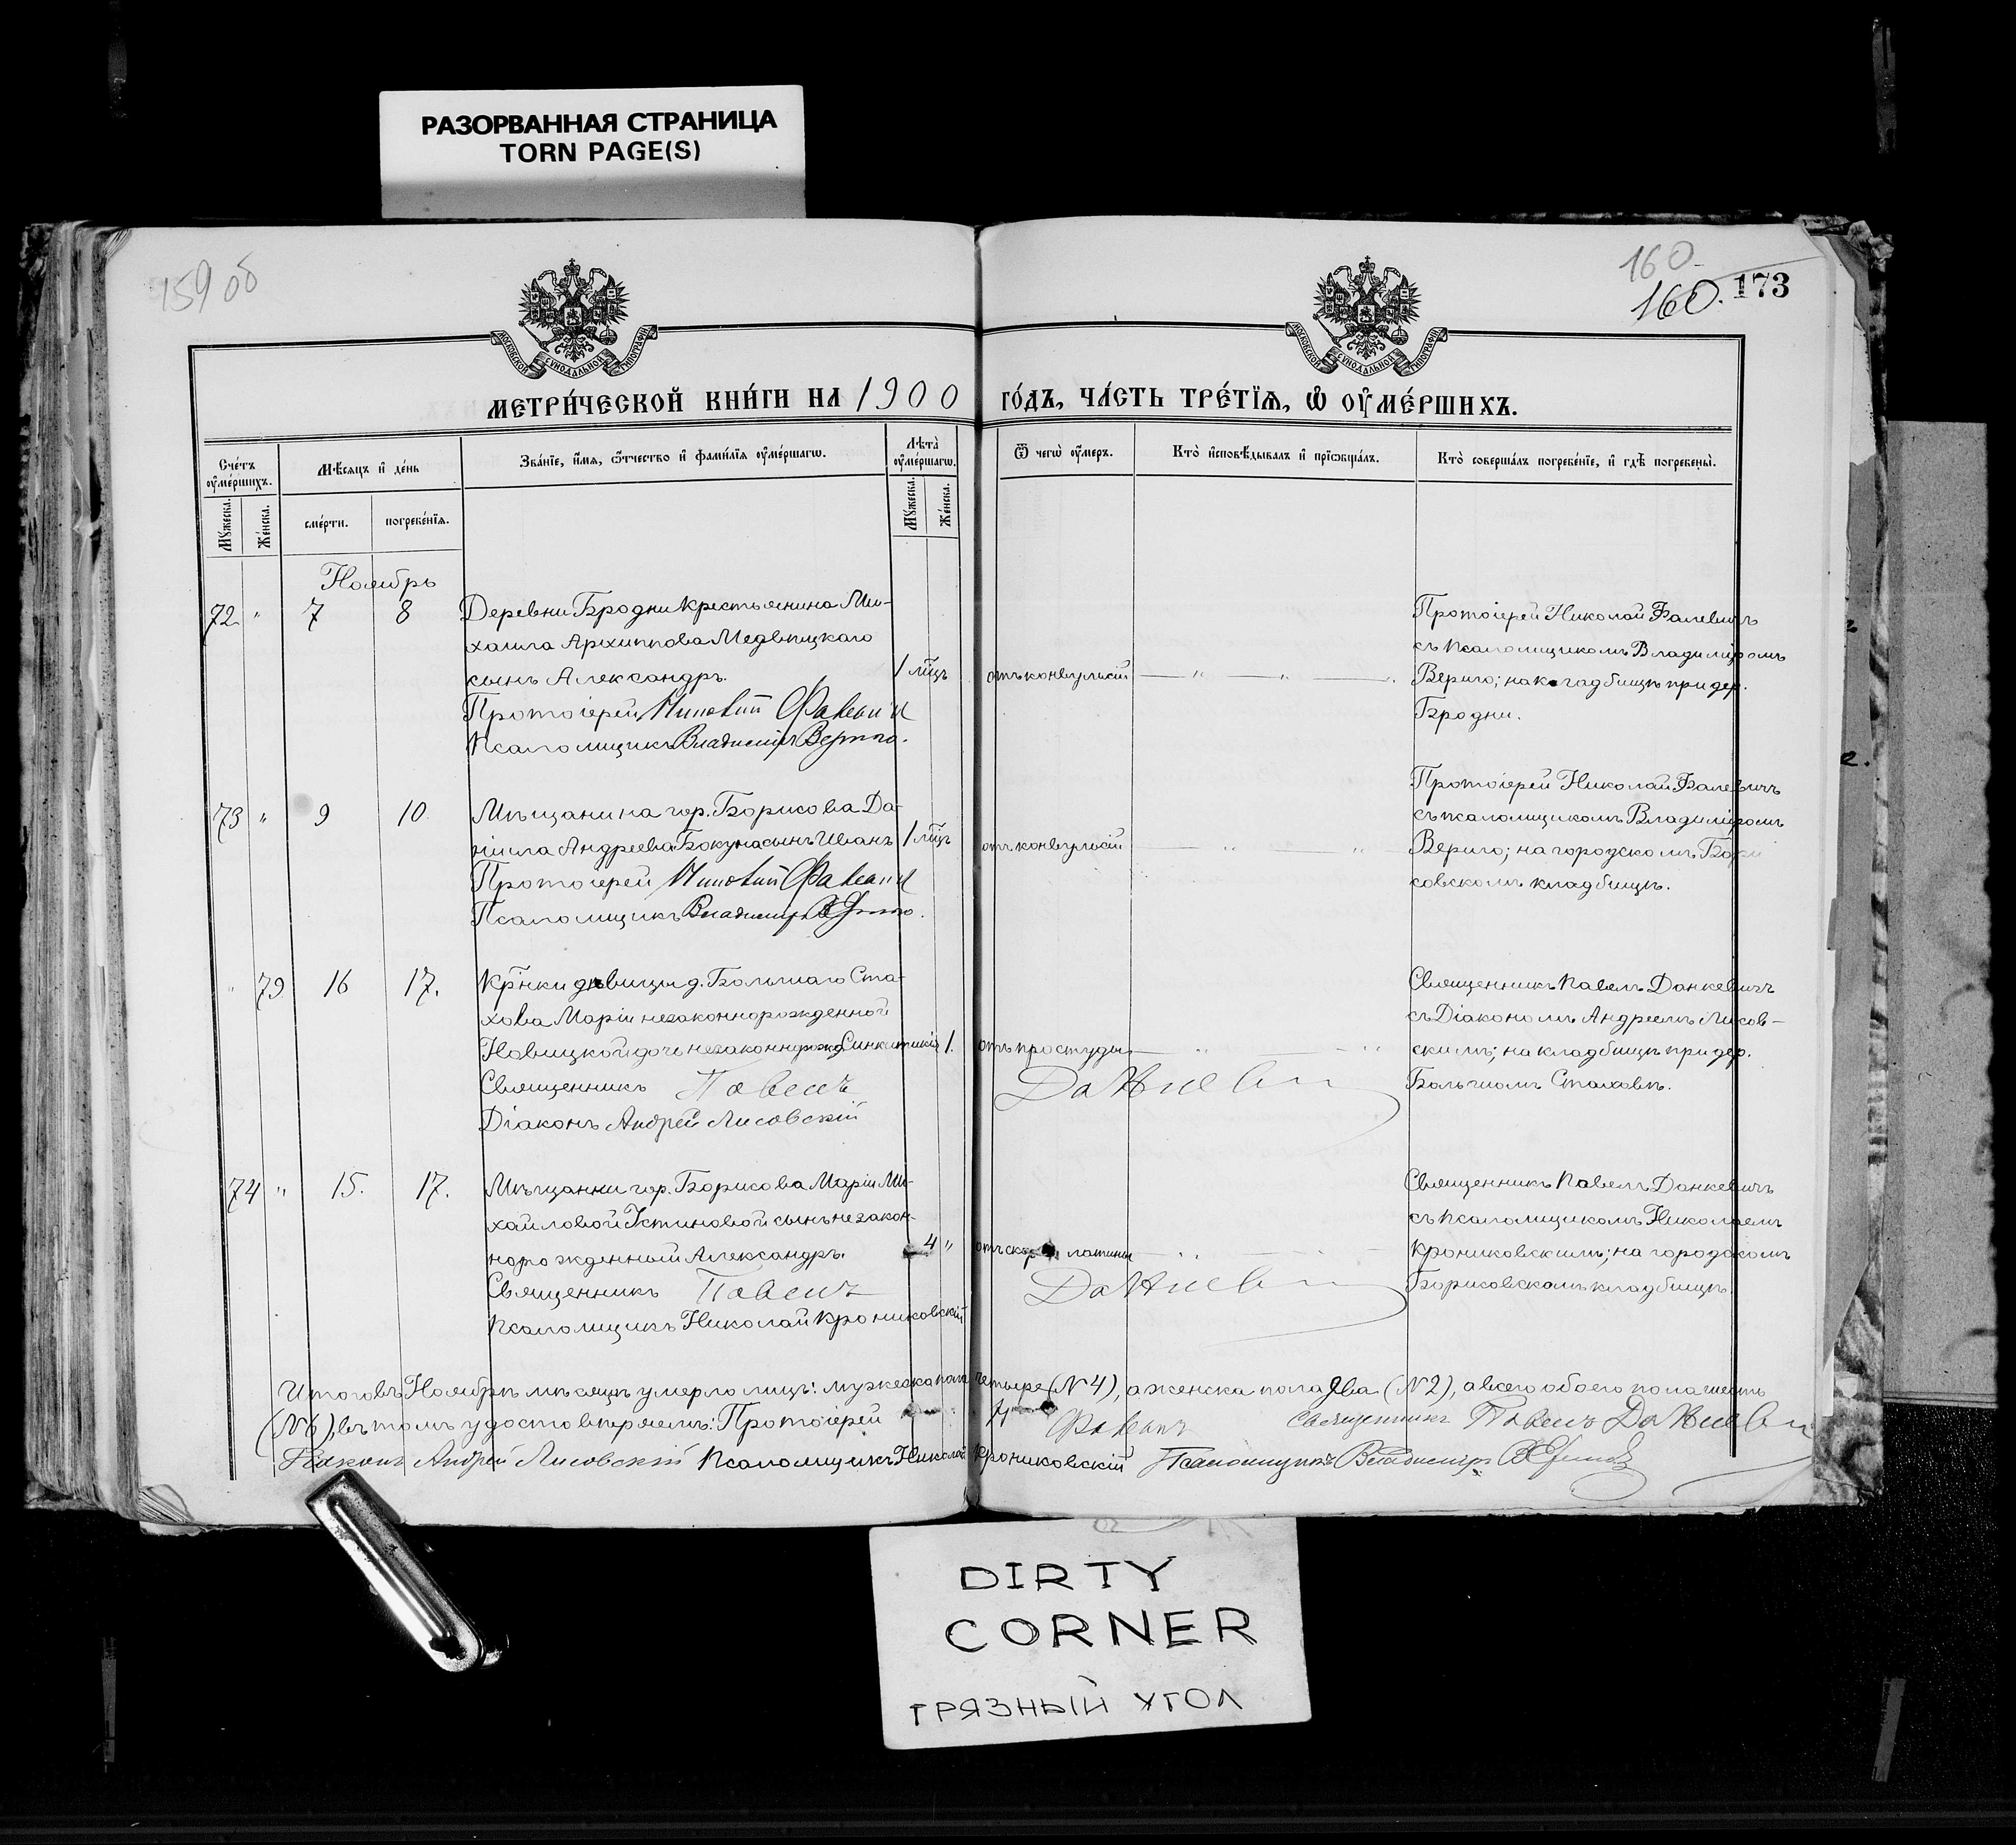 РАЗОРВАННАЯ СТРАНИЦА
TORN PAGE(S)
159 об
160
160. 173
МОСКОВСКОЙ СѴНОДАЛЬНОЙ ТИПОГРАФІИ
МОСКОВСКОЙ СѴНОДАЛЬНОЙ ТИПОГРАФІИ
МЕТРИ́ЧЕСКОЙ КНИ́ГИ НА 1900 ГО́ДЪ, ЧА́СТЬ ТРЕ́ТЇѦ, Ѡ҆ ОУ҆МЕ́РШИХЪ.
Сче́тъ оу҆ме́ршихъ.
Мѣ́сяцъ и҆ де́нь
Зва́нїе, и҆́мѧ, ѻ҆́тчество и҆ фами́лїѧ оу҆ме́ршагѡ.
Лѣта̀ оу҆ме́ршагѡ.
Ѿ чегѡ̀ оу҆́меръ.
Кто̀ и҆сповѣ́дывалъ и҆ прїѡбща́лъ.
Кто̀ соверша́лъ погребе́нїе, и҆ гдѣ̀ погребены̀.
Мꙋ́жеска. Же́нска. сме́рти. погребе́нїѧ. Мꙋ́жеска. Же́нска.
Ноябрь
72 " 7 8
Деревни Бродни крестьянина Ми-
хаила Архиппова Медвѣцкаго
сынъ Александръ.
Протоіерей Николай Фалевич
Псаломщикъ Владиміръ Вериго.
1 мц̃ъ
отъ конвульсій — " — " —
Протоіерей Николай Фалевичъ
съ псаломщикомъ Владиміромъ
Вериго; на кладбищѣ при дер.
Бродни.
73 " 9 10.
Мѣщанина гор. Борисова Да-
ніила Андреева Бокуна сынъ Иванъ
Протоіерей Николай Фалевич
Псаломщикъ Владиміръ Вериго.
1 мц̃ъ
отъ конвульсій — " — " —
Протоіерей Николай Фалевичъ
съ псаломщикомъ Владиміромъ
Вериго; на городскомъ Бори
совскомъ кладбищѣ.
" 79 16 17.
Кр̃нки дѣвицы д. Большаго Ста-
хова Маріи незаконнорожденной
Новицкой дочь незаконнорожд Синклитикія
Священникъ Павелъ
Діаконъ Андрей Лисовскій
1.
отъ простуды — " — "
Данкевич
Священникъ Павелъ Данкевичъ
съ Діакономъ Андреемъ Лисов-
скимъ; на кладбищѣ при дер.
Большомъ Стаховѣ.
74 " 15. 17.
Мѣщанки гор. Борисова Маріи Ми-
хайловой Устиновой сынъ незакон-
норожденный Александръ.
Священникъ Павелъ
Псаломщикъ Николай Крониковскій
4 "
отъ скарлатины — " — "
Данкевич
Священникъ Павелъ Данкевичъ
съ псаломщикомъ Николаемъ
Крониковскимъ; на городскомъ
Борисовскомъ кладбищѣ.
Итого въ Ноябрѣ мѣсяцѣ умерло лицъ: мужеска пола четыре (№ 4), а женска пола два (№ 2), а всего обоего пола шесть
(№ 6), въ томъ удостовѣряемъ: Протоіерей Фалевичъ Священникъ Павелъ Данкевич
Діаконъ Андрей Лисовскій Псаломщикъ Николай Крониковскій Псаломщикъ Владиміръ Вериго
DIRTY
CORNER
ГРЯЗНЫЙ УГОЛ